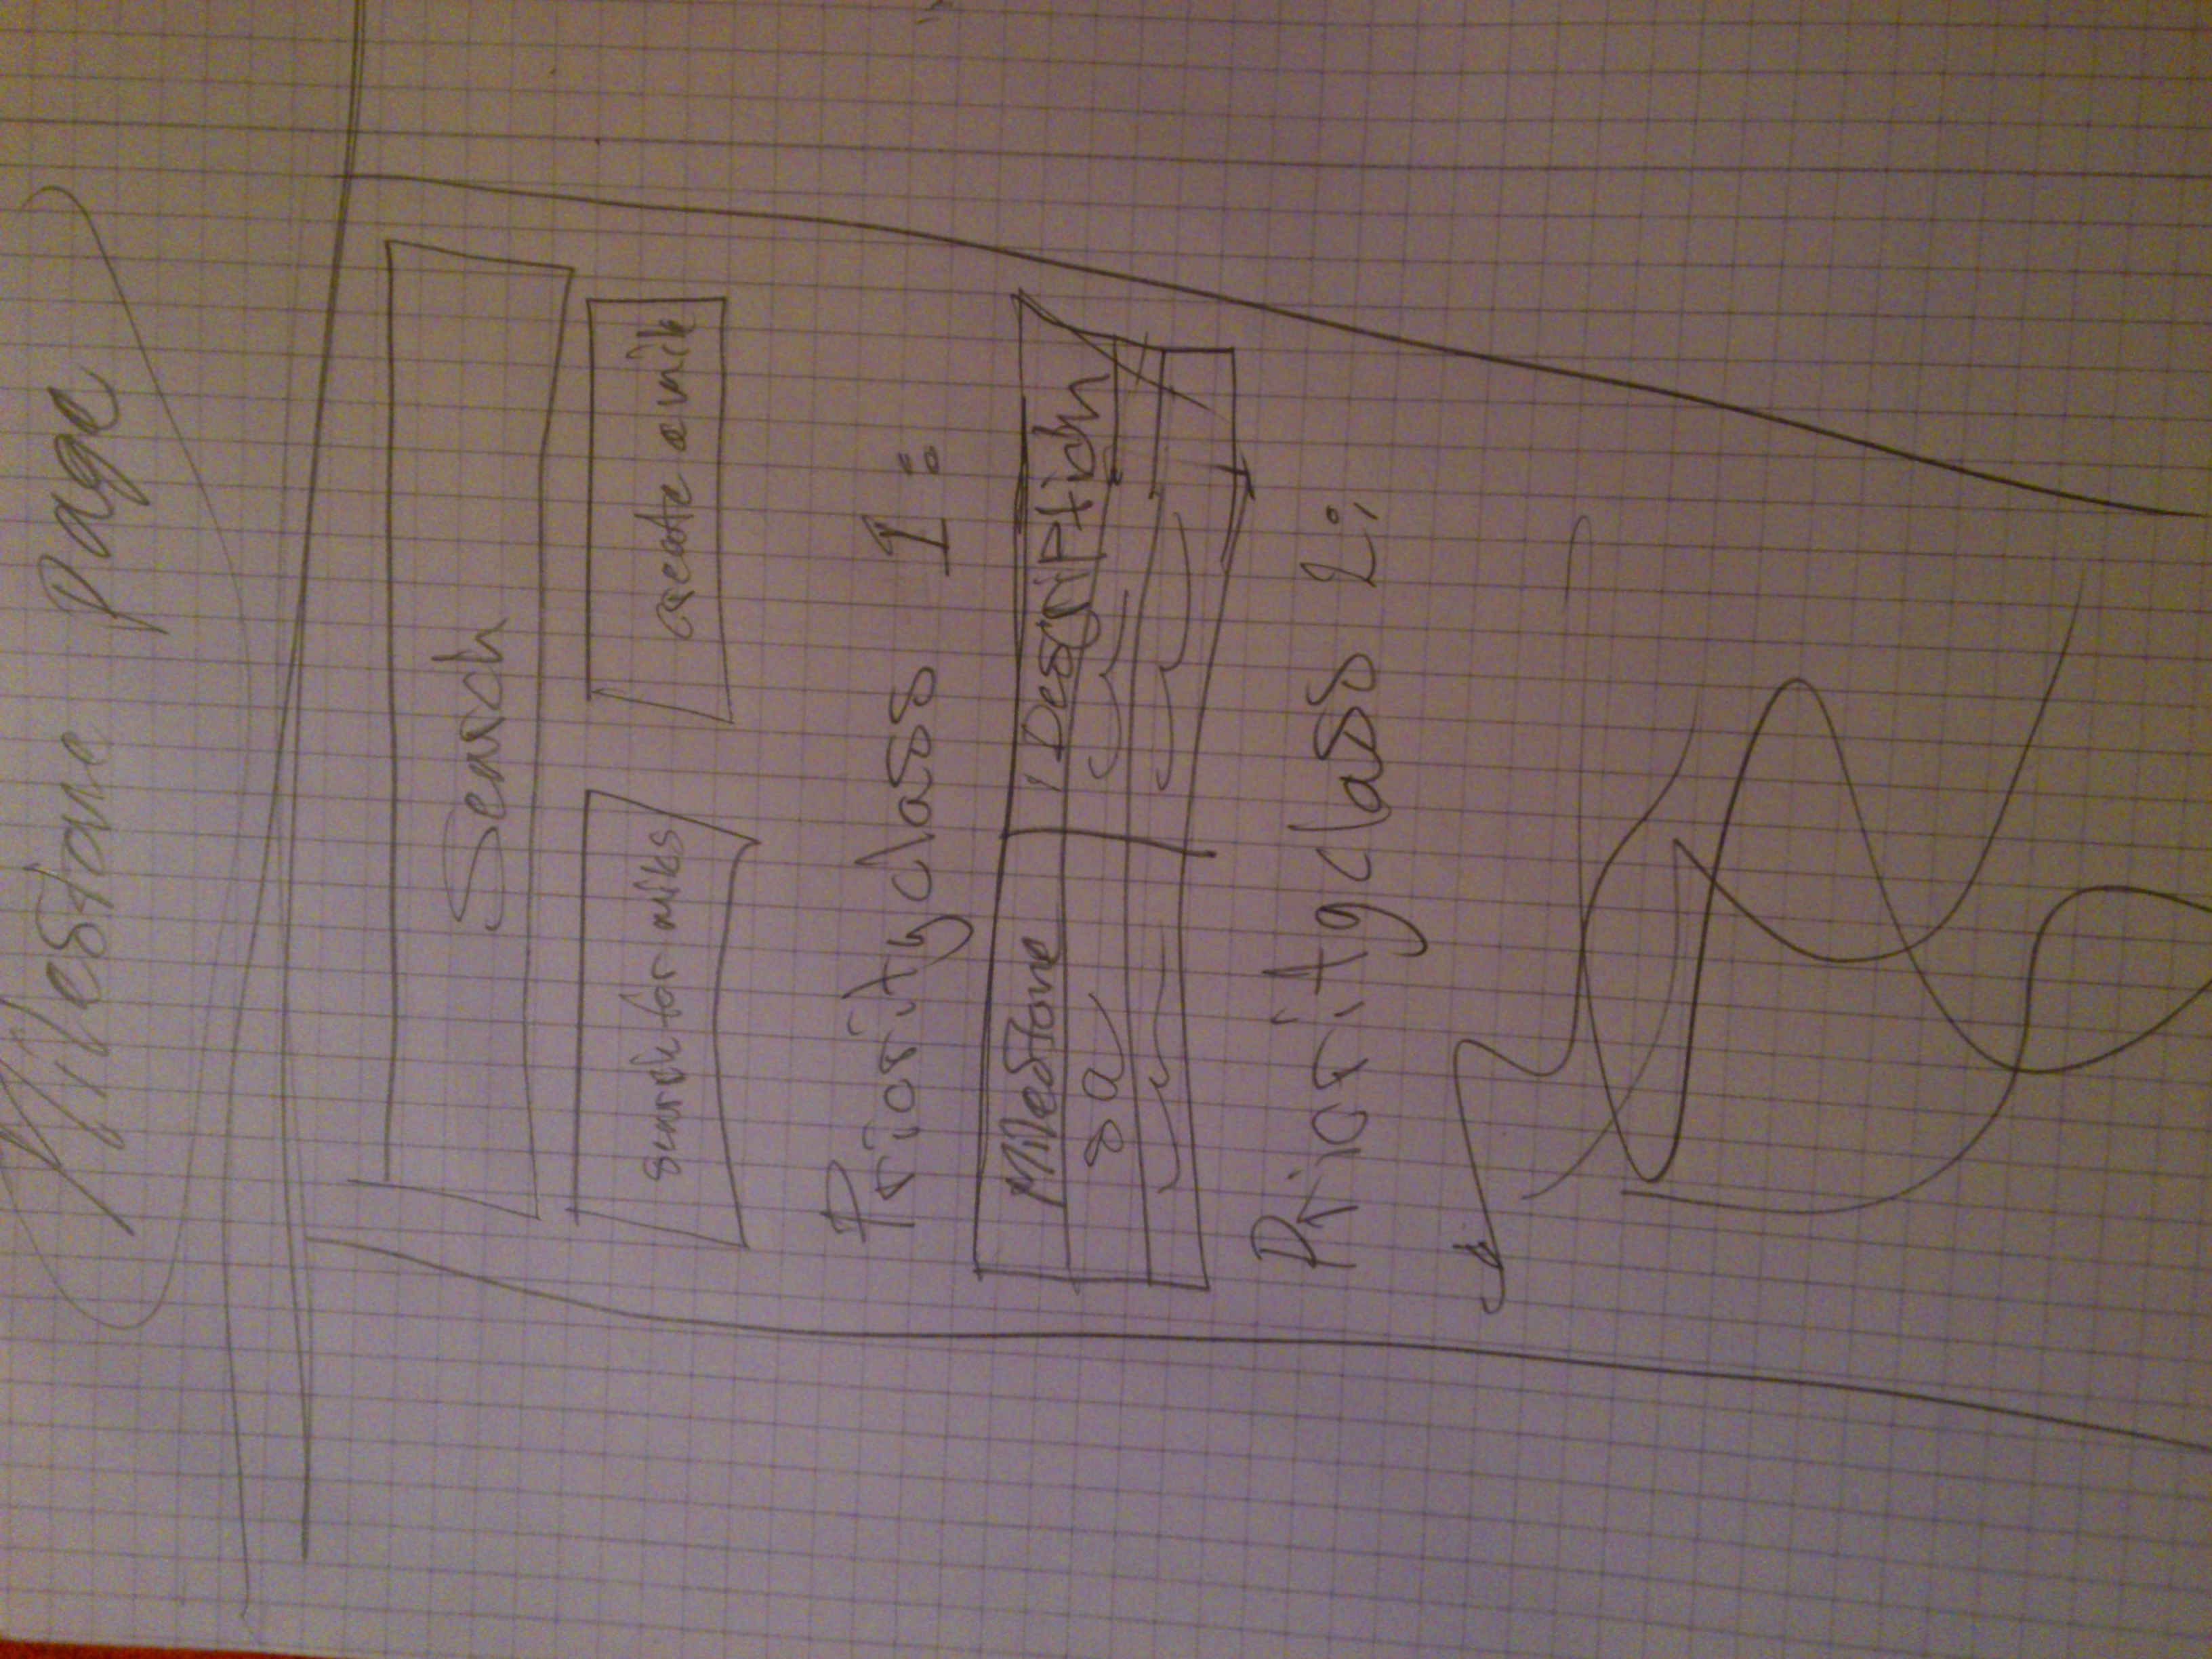 Milestone page
Search
search for miles
create a mile
Priorityclass 1:
Milestone Description
Priorityclass 2: